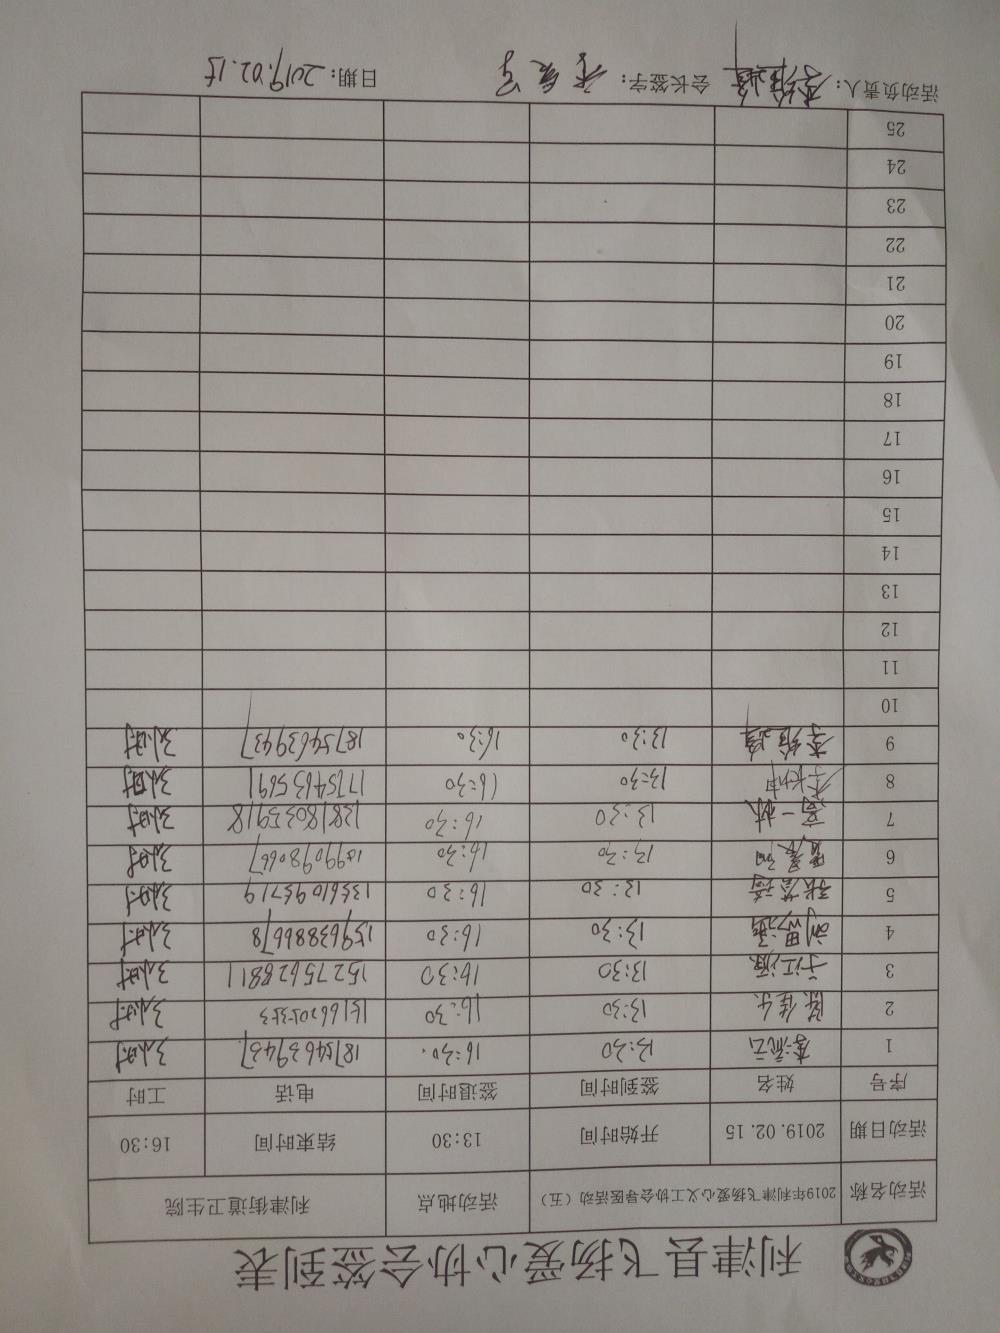 利津县飞扬爱心协会签到表
活动名称 2019年利津飞扬爱心义工协会导医活动（五） 活动地点 利津街道卫生院
活动日期 2019.02.15 开始时间 13:30 结束时间 16:30
序号 姓名 签到时间 签退时间 电话 工时
1 李流云 13:30 16:30 18754639437 3小时
2 陈佳乐 13:30 16:30 3小时
3 于江源 13:30 16:30 15275628811 3小时
4 刘思涵 13:30 16:30 15963888678 3小时
5 张茗琦 13:30 16:30 13561095719 3小时
6 13:30 16:30 18990980667 3小时
7 高一林 13:30 16:30 13818035918 3小时
8 13:30 16:30 17754635691 3小时
9 13:30 16:30 18754639437 3小时
10
11
12
13
14
15
16
17
18
19
20
21
22
23
24
25
活动负责人： 会长签字： 日期：2019.02.15